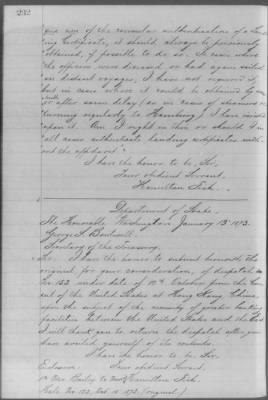 232
give one of the consular authentication of a landing
Certificate, it should always be previously
obtained, if possible to do so. In cases where
the officers were deceased or had again sailed
on distant voyages, I have not required it,
but in cases where it could be obtained by
or after some delay (as in cases of steamers returning
regularly to Hamburg) I have insisted
upon it. Am I right in this or should I in
all cases authenticate landing certificates without
the affidavit?
I have the honor to be, Sir,
Your obedient Servant,
Hamilton Fish.
Department of State,
Washington January 13th 1873.
The Honorable
George S. Boutwell,
Secretary of the Treasury.
Sir: I have the honor to submit herewith the
original, for your consideration, of dispatch
No. 152 under date of 10th October from the Consul
of the United States at Hong Kong, China,
upon the subject of the necessity of greater
facilities between the United States and
I will thank you to return the dispatch after you
have availed yourself of its contents.
I have the honor to be, Sir,
Your obedient Servant,
Hamilton Fish.
Enclosure
Mr. Bailey to Mr.
Hale No. 152, Oct. 10 1872 (original.)